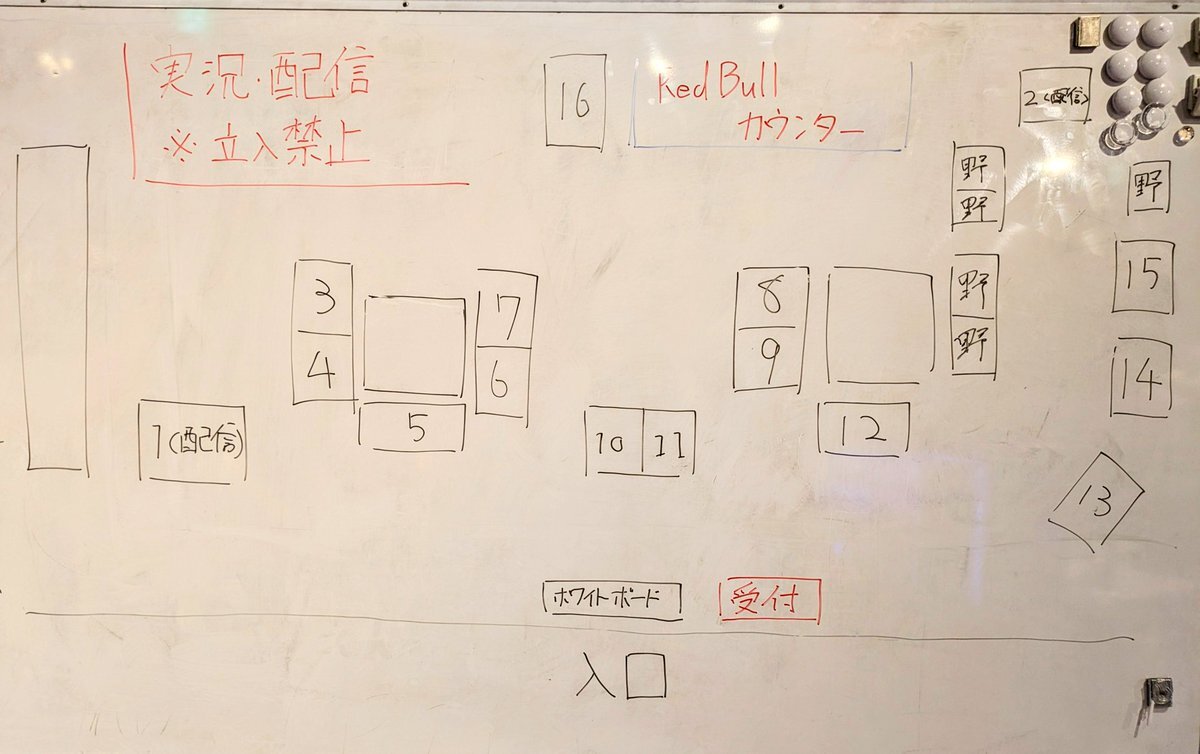 実況・配信
※立入禁止
16
Red Bull
カウンター
2(配信)
野
野
野
15
3
4
7
6
8
9
野
野
14
1(配信)
5
10 11
12
13
ホワイトボード
受付
入口